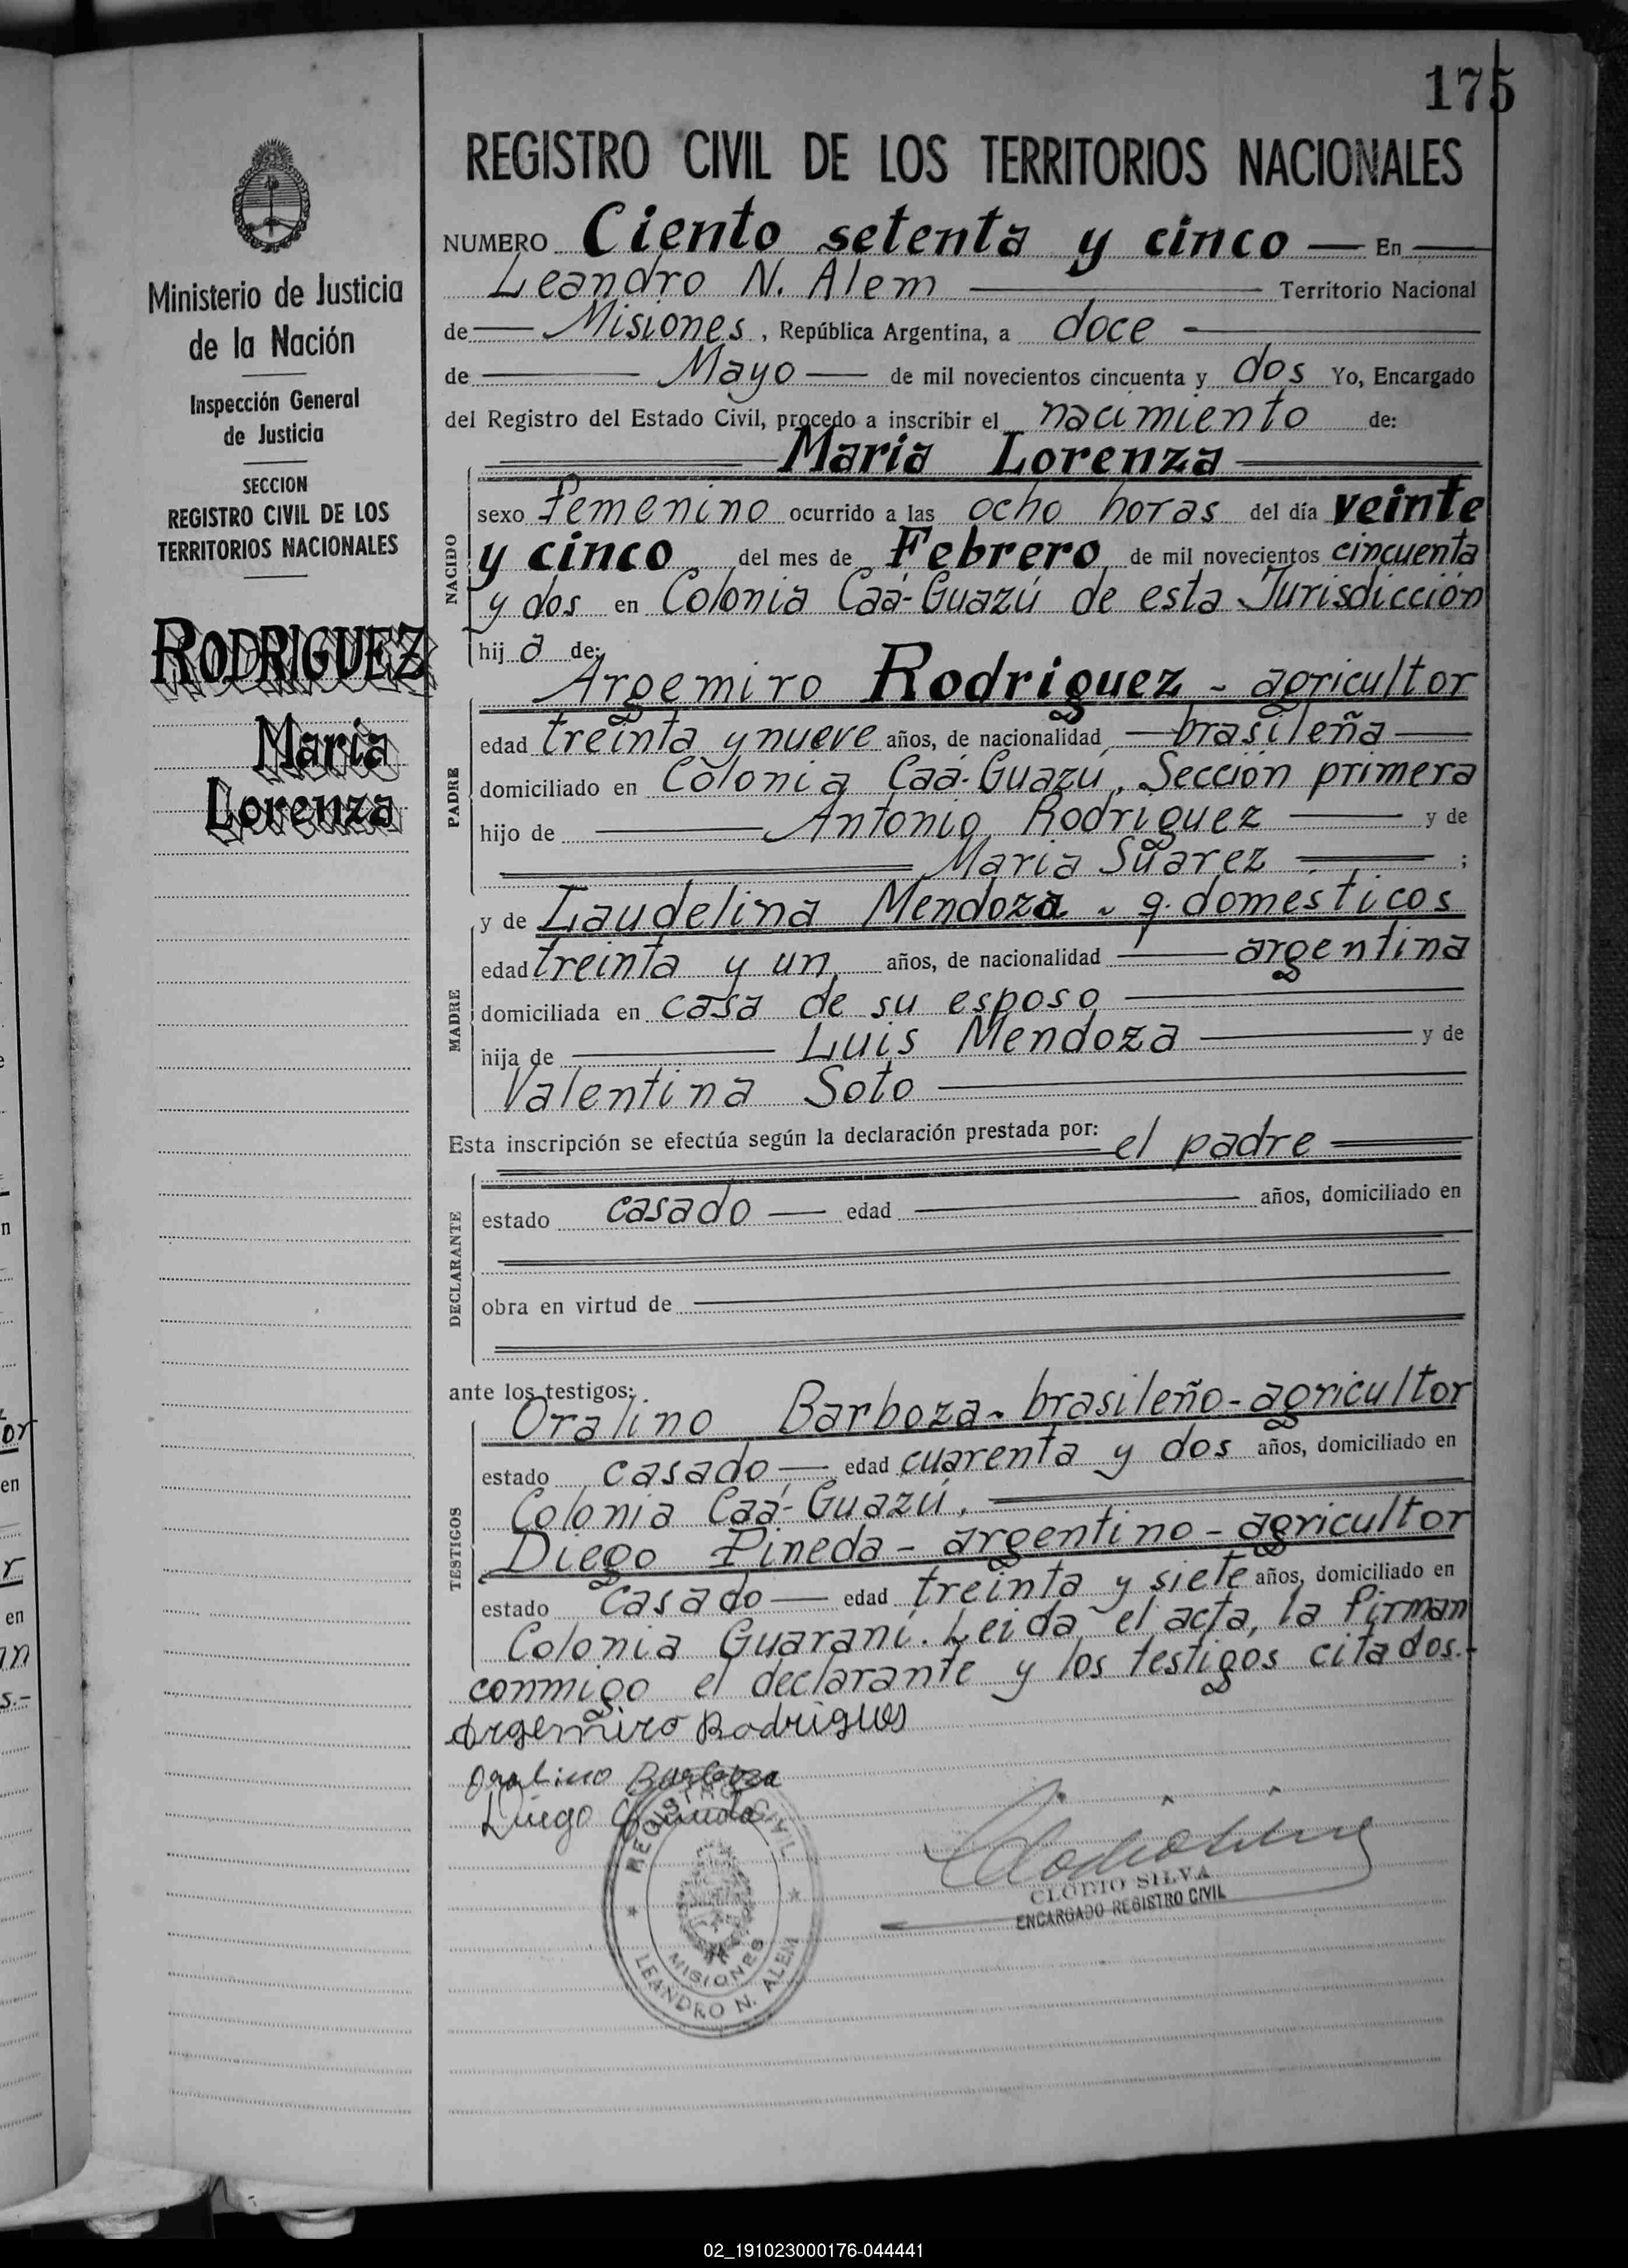 175
REGISTRO CIVIL DE LOS TERRITORIOS NACIONALES
NUMERO Ciento setenta y cinco — En
Leandro N. Alem Territorio Nacional
de Misiones, República Argentina, a doce
de Mayo de mil novecientos cincuenta y dos Yo, Encargado
del Registro del Estado Civil, procedo a inscribir el nacimiento de:
Maria Lorenza
NACIDO
sexo femenino ocurrido a las ocho horas del día veinte
y cinco del mes de Febrero de mil novecientos cincuenta
y dos en Colonia Caá-Guazú de esta Jurisdicción
hij a de:
PADRE
Argemiro Rodriguez - agricultor
edad treinta y nueve años, de nacionalidad brasileña
domiciliado en Colonia Caá-Guazú, Sección primera
hijo de Antonio Rodriguez y de
Maria Suarez ;
MADRE
y de Laudelina Mendoza - q. domesticos
edad treinta y un años, de nacionalidad argentina
domiciliada en casa de su esposo
hija de Luis Mendoza y de
Valentina Soto
Esta inscripción se efectúa según la declaración prestada por: el padre
DECLARANTE
estado casado — edad años, domiciliado en
obra en virtud de
ante los testigos:
TESTIGOS
Oralino Barboza - brasileño - agricultor
estado casado — edad cuarenta y dos años, domiciliado en
Colonia Caá-Guazú.
Diego Pineda - argentino - agricultor
estado casado — edad treinta y siete años, domiciliado en
Colonia Guaraní. Leida el acta, la firman
conmigo el declarante y los testigos citados.-
Argemiro Rodrigues
Oralino Barboza
Diego Pineda
REGISTRO CIVIL
MISIONES
LEANDRO N. ALEM
CLODIO SILVA
ENCARGADO REGISTRO CIVIL
Ministerio de Justicia
de la Nación
Inspección General
de Justicia
SECCION
REGISTRO CIVIL DE LOS
TERRITORIOS NACIONALES
RODRIGUEZ
Maria
Lorenza
02_191023000176-044441